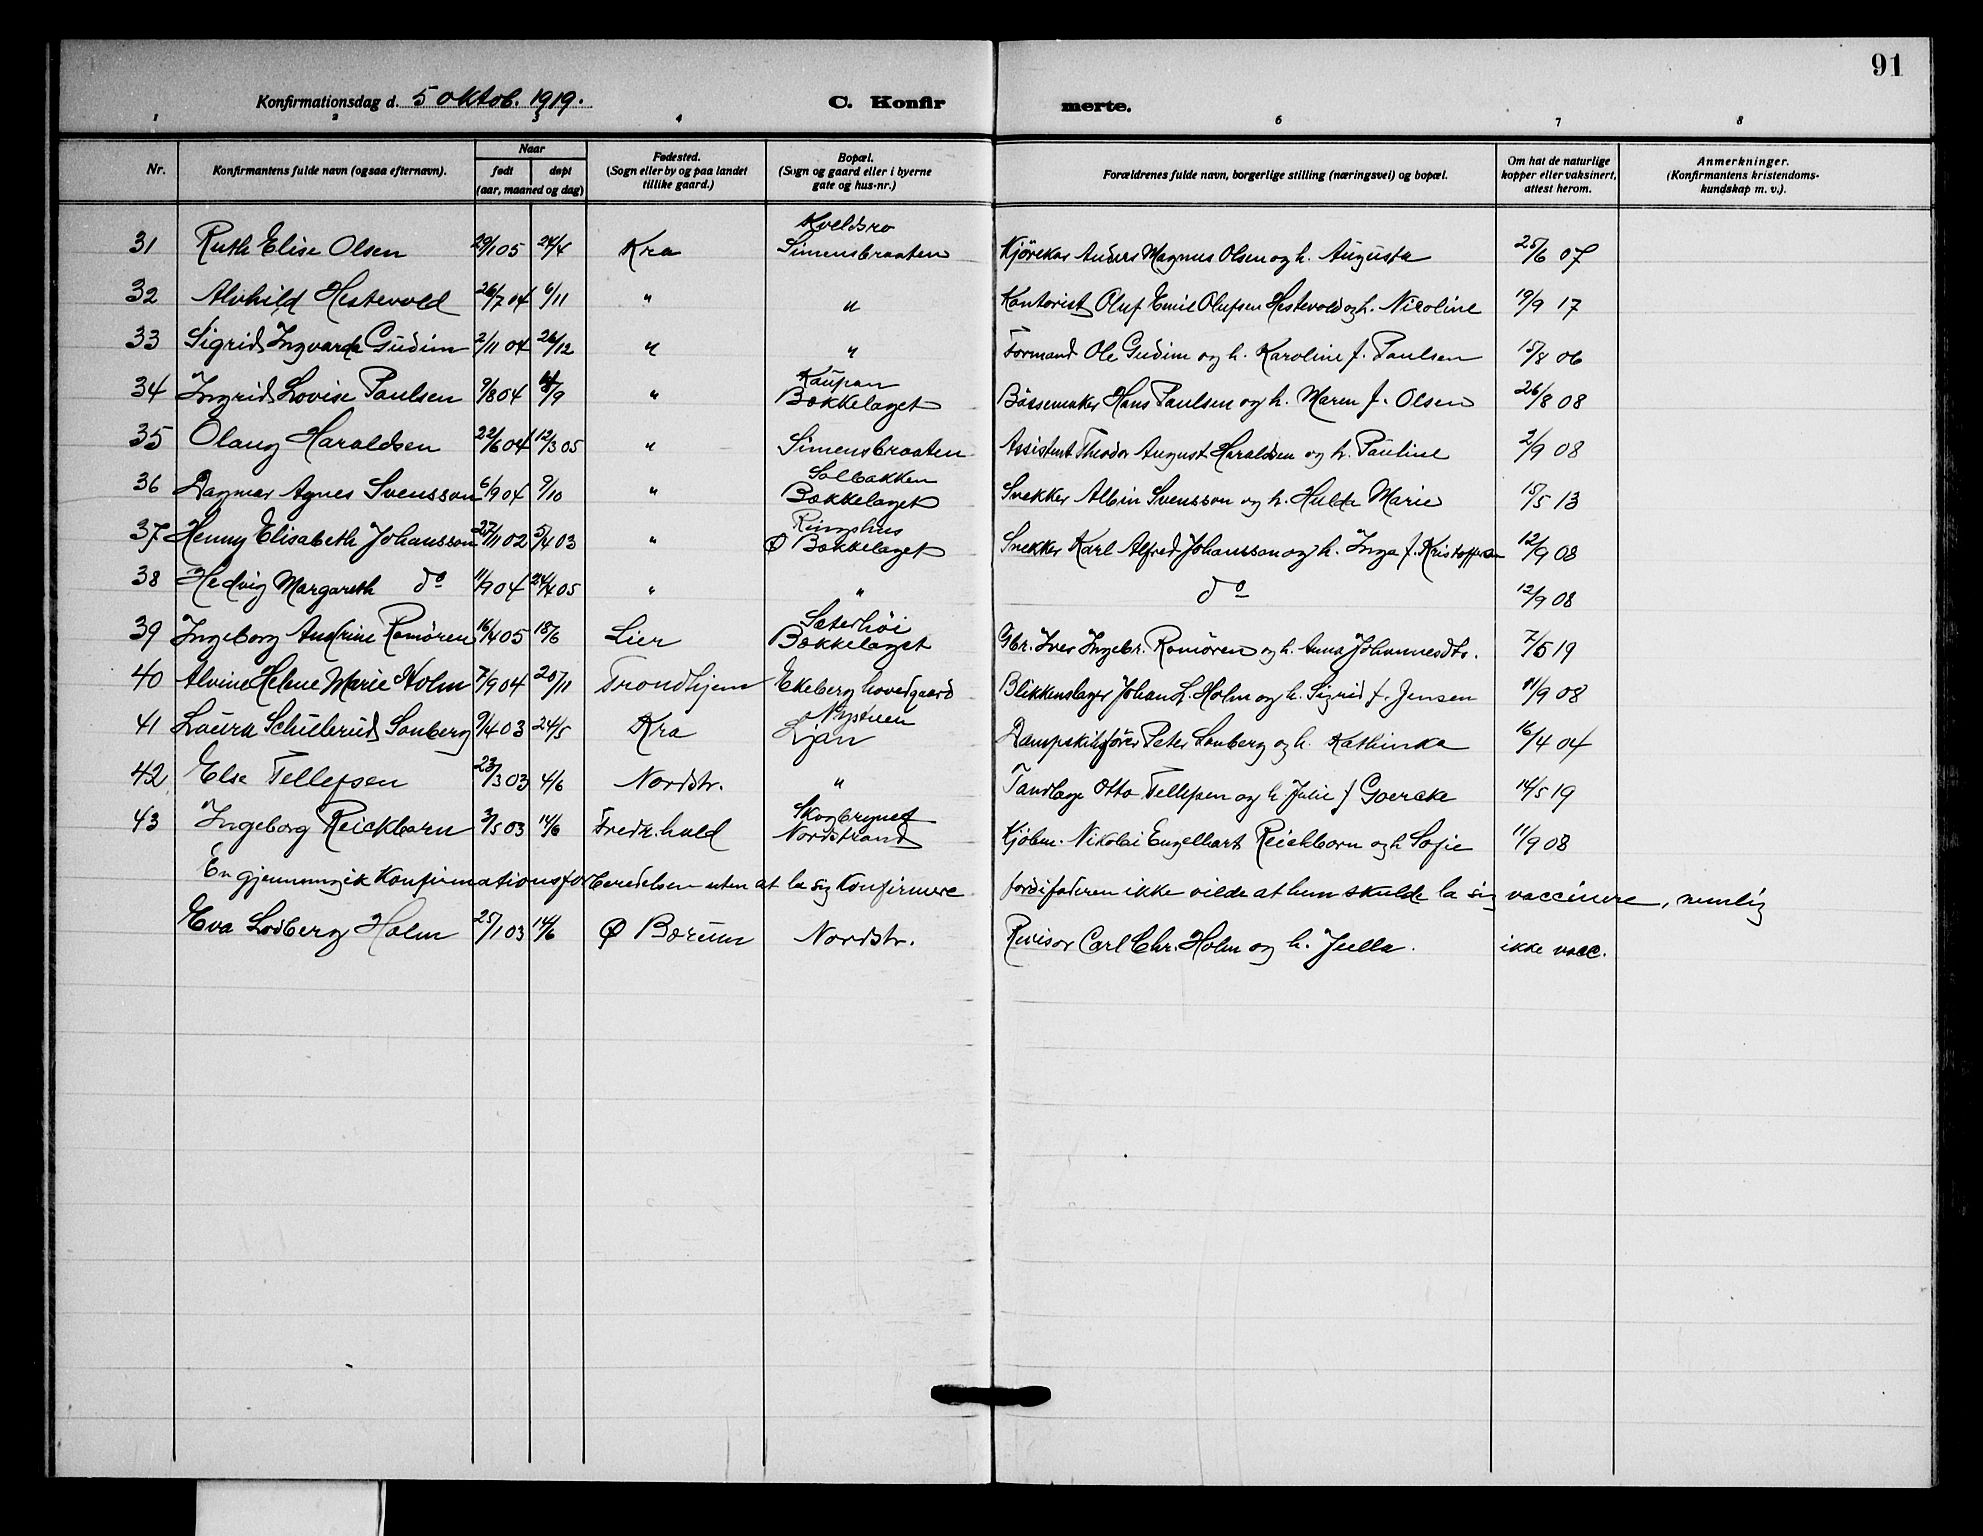 91
Konfirmationsdag d. 5 oktob. 1919.
C. Konfir merte.
1 2 3 4 6 7 8
Nr. Konfirmantens fulde navn (ogsaa efternavn). Naar født døpt (aar, maaned og dag) Fødested. (Sogn eller by og paa landet tillike gaard.) Bopæl. (Sogn og gaard eller i byerne gate og hus-nr.) Forældrenes fulde navn, borgerlige stilling (næringsvei) og bopæl. Om hat de naturlige kopper eller vaksinert, attest herom. Anmerkninger. (Konfirmantens kristendoms- kundskap m. v.).
31 Ruth Elise Olsen 29/1 05 24/4 Kra Kveldsro Simensbraaten Kjørekar Anders Magnus Olsen og h. Augusta 25/6 07
32 Alvhild Hestevold 26/7 04 6/11 " " Kontorist Oluf Emil Olufsen Hestevold og h. Nicoline 19/9 17
33 Sigrid Ingvarda Gudim 2/11 04 26/12 " " Formand Ole Gudim og h. Karoline f. Paulsen 15/8 06
34 Ingrid Lovise Paulsen 9/8 04 /9 " Kaupan Bækkelaget Bøssemaker Hans Paulsen og h. Maren f. Olsen 26/8 08
35 Olaug Haraldsen 22/6 04 12/3 05 " Simensbraaten Assistent Theodor August Haraldsen og h. Pauline 2/9 08
36 Dagmar Agnes Svensson 6/9 04 9/10 " Solbakken Bækkelaget Snekker Albin Svensson og h. Hulda Marie 15/5 13
37 Henny Elisabeth Johansson 27/11 02 5/4 03 " Ringshus Ø Bækkelaget Snekker Karl Alfred Johansson og h. Inga f. Kristoffersen 12/9 08
38 Hedvig Margareth do 11/9 04 24/4 05 " " do 12/9 08
39 Ingeborg Andrine Romøren 16/4 05 18/6 Lier Sæterhøi Bækkelaget Gbr. Iver Ingebr. Romøren og h. Anna Johannesdtr. 7/5 19
40 Alvine Helene Marie Holm 7/9 04 20/11 Trondhjem Ekeberg hovedgaard Blikkenslager Johan L. Holm og h. Sigrid f. Jensen 11/9 08
41 Laura Schulerud Sonberg 9/4 03 24/5 Kra Nystuen Ljan Dampskibsfører Peter Sonberg og h. Kathinka 16/4 04
42 Else Tellefsen 23/3 03 4/6 Nordstr. " Tandlæge Otto Tellefsen og h. Julie f Goercke 14/5 19
43 Ingeborg Reichborn 3/5 03 14/6 Fredr.hald Skogbrynet Nordstrand Kjøbm. Nikolai Engelhart Reichborn og h Sofie 11/9 08
En gjennemgik Konfirmationsforberedelsen uten at la sig Konfirmere fordi faderen ikke vilde at hun skulde la sig vaccinere, nemlig
Eva Lodberg Holm 25/1 03 14/6 Ø Bærum Nordstr. Revisor Carl Chr. Holm og h. Julla. ikke vacc.